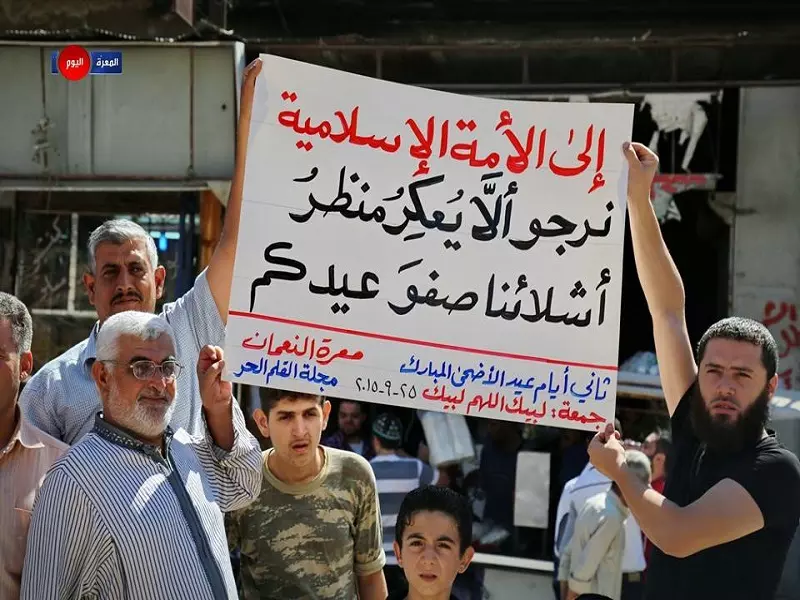 المعرة اليوم
إلى الأمة الإسلامية
نرجو ألَّا يُعكِرُ منظرُ
أشلائنا صفوَ عيدكم
ثاني أيام عيد الأضحى المبارك
معرة النعمان
جمعة: لبيك اللهم لبيك
٢٥-٩-٢٠١٥
مجلة القلم الحر